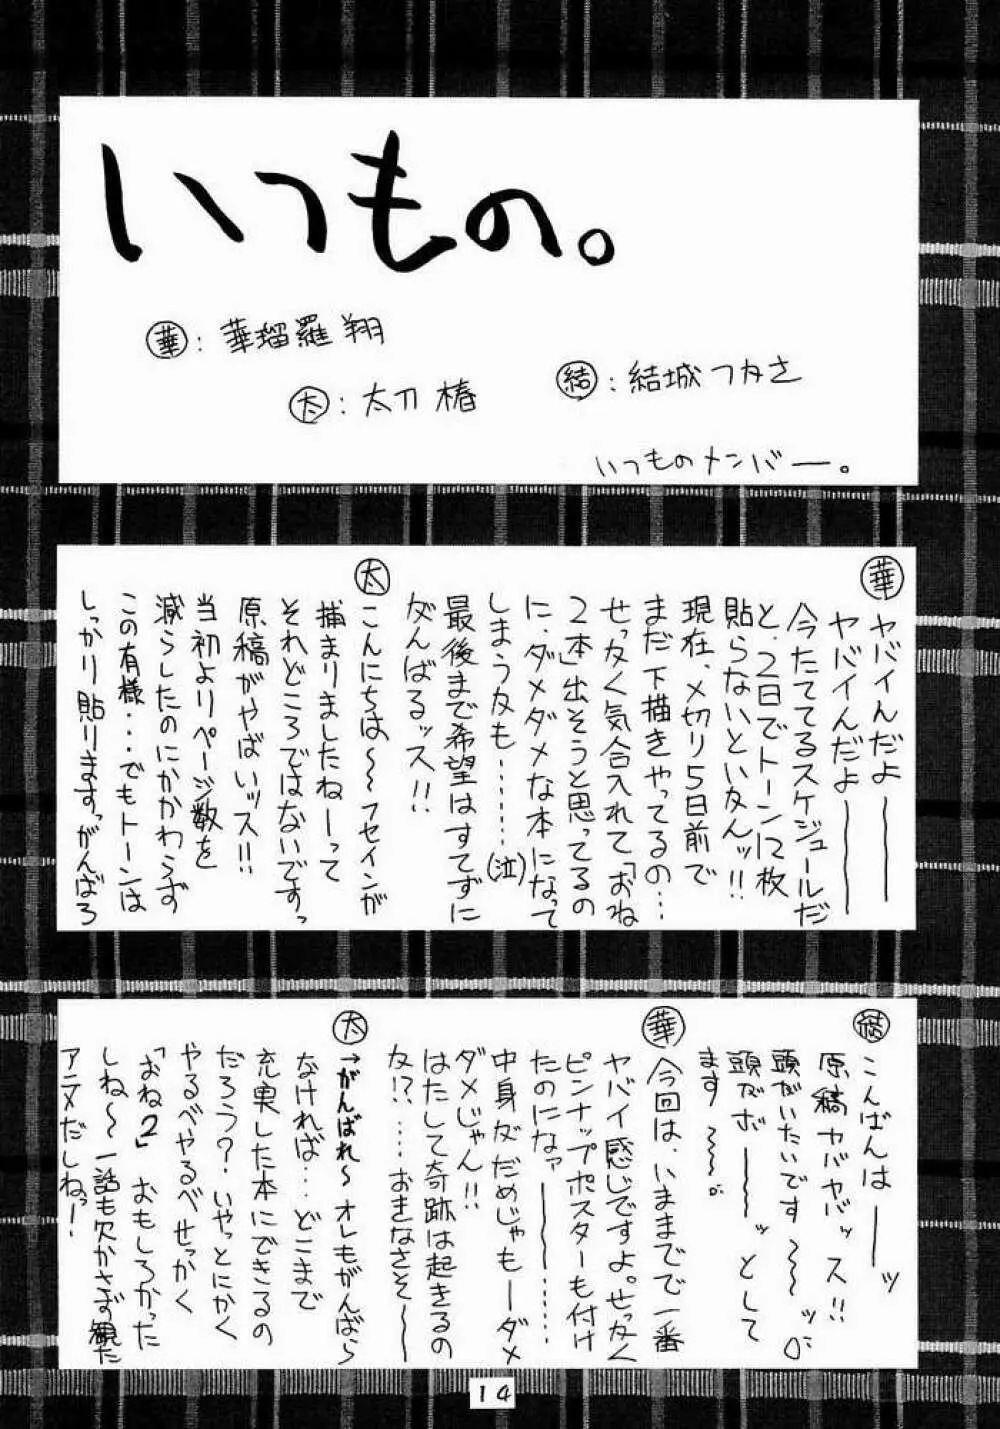 いつもの。
華：華瑠羅翔
太：太刀椿
結：結城つかさ
いつものメンバー。
華
ヤバイんだよ———
ヤバイんだよ———
今たててるスケジュールだ
と、2日でトーン12枚
貼らないといかんッ!!
現在、〆切り5日前で
まだ下描きやってるの…
せっかく気合入れて「おね
2本」出そうと思ってるの
に、ダメダメな本になって
しまうかも………(泣)
最後まで希望はすてずに
がんばるッス!!
太
こんにちは〜〜フセインが
捕まりましたねーって
それどころではないですっ
原稿がやばいッス!!
当初よりページ数を
減らしたのにかかわらず
この有様・・・でもトーンは
しっかり貼りますっがんばろ
結
こんばんは——ッ
原稿ヤバヤバッス!!
頭がいたいです〜〜ッ。
頭がボ——ッとして
ます〜〜。
華
今回は、いままでで一番
ヤバイ感じですよ。せっかく
ピンナップポスターも付け
たのになァ——〜………
中身がだめじゃもーダメ
ダメじゃん!!
はたして奇跡は起きるの
か!?……おきなさそ〜〜
太
→がんばれ〜オレもがんばら
なければ…どこまで
充実した本にできるの
だろう？いやっとにかく
やるべやるべせっかく
「おね2」おもしろかった
しね〜〜一話も欠かさず観た
アニメだしねっ!
14